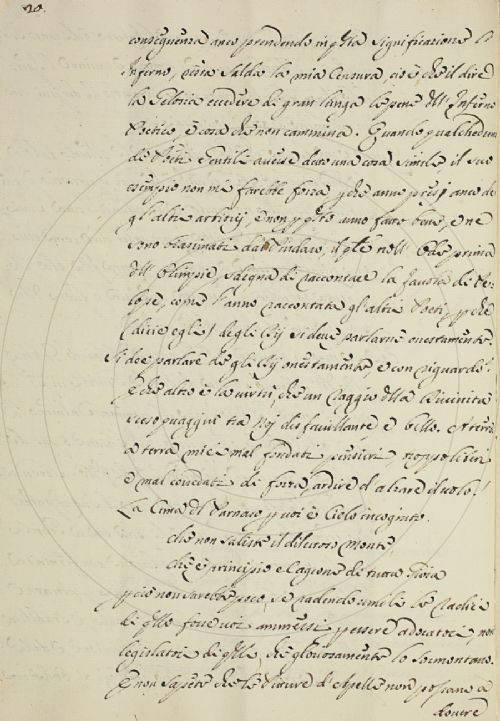 20.
conseguenza anco prendendo in q.ta significazione l'
Inferno, resta salda la mia Censura, cioè che il dire
la Gelosia eccedere di gran lunga le pene dell' Inferno
Poetico, è cosa che non cammina. Quando qualcheduno
de Poeti Gentili avesse detto una cosa simile il suo
esempio non mi farebbe forza, p.che anno presi anco de
gl'altri arbitrij, e non p q.to anno fatto bene, e ne
sono biasimati da Pindaro, il q.le nell' Ode prima
dell' Olimpie, sdegna di raccontare la favola di Pe-
lope, come l'anno raccontata gl'altri Poeti, p.che
(dice egli) degli Dij si deve parlarne onestamente.
Si dee parlare de gli Dij onestamente e con riguardo.
E che altro è la virtù, che un raggio della Divinità
sceso quaggiù tra Noi disfavillante e bello. A terra
a terra miei mal fondati pensieri,
e mal covedati di forza, ardire d'alzare il volo!
La Cima del Parnaso p voi è Cielo incognito.
che non saliste il dilettoso Monte,
che è principio e Cagione di tutta Gioia
p ciò non sarebbe poco, se radendo umili le radici
di q.llo foste voi ammessi p essere adoratori, non
legislatori di q.lli, che gloriosamente lo sormontano.
E non sapete che le Pitture d'Apelle non possano a
dovere